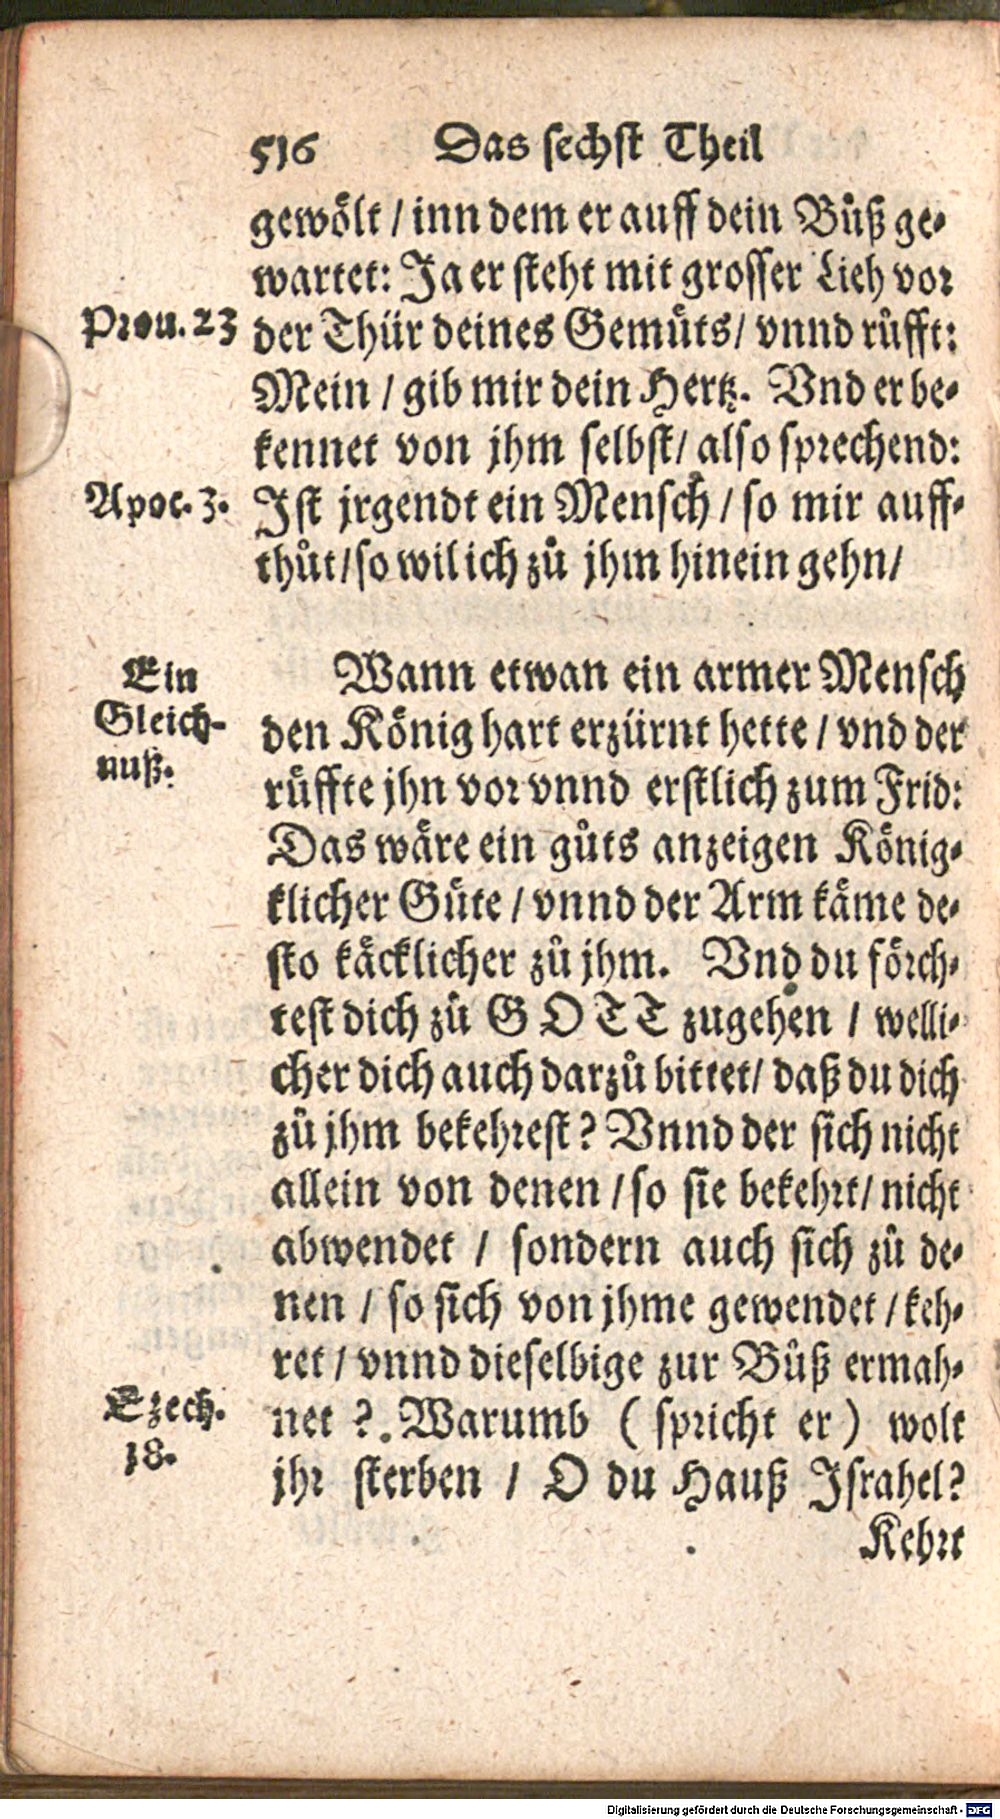 516 Das sechst Theil
gewoͤlt / inn dem er auff dein Buͦß ge-
wartet: Ja er steht mit grosser Lieb vor
Prou. 23
der Thür deines Gemuͤts / vnnd ruͤfft:
Mein / gib mir dein Hertz. Vnd er be-
kennet von jhm selbst / also sprechend:
Apoc. 3.
Ist jrgendt ein Mensch / so mir auff-
thuͦt / so wil ich zuͦ jhm hinein gehn /
Ein
Gleich-
nuß.
Wann etwan ein armer Mensch
den Koͤnig hart erzürnt hette / vnd der
ruͤffte jhn vor vnnd erstlich zum Frid:
Das waͤre ein guͦts anzeigen Koͤnig-
klicher Guͤte / vnnd der Arm kaͤme de-
sto kaͤcklicher zuͦ jhm. Vnd du foͤrch-
test dich zuͦ GOTT zugehen / welli-
cher dich auch darzuͦ bittet / daß du dich
zuͦ jhm bekehrest? Vnnd der sich nicht
allein von denen / so sie bekehrt / nicht
abwendet / sondern auch sich zuͦ de-
nen / so sich von jhme gewendet / keh-
ret / vnnd dieselbige zur Buͦß ermah-
Ezech.
18.
net ? Warumb ( spricht er ) wolt
jhr sterben / O du Hauß Israhel?
Kehrt
Digitalisierung gefördert durch die Deutsche Forschungsgemeinschaft - DFG